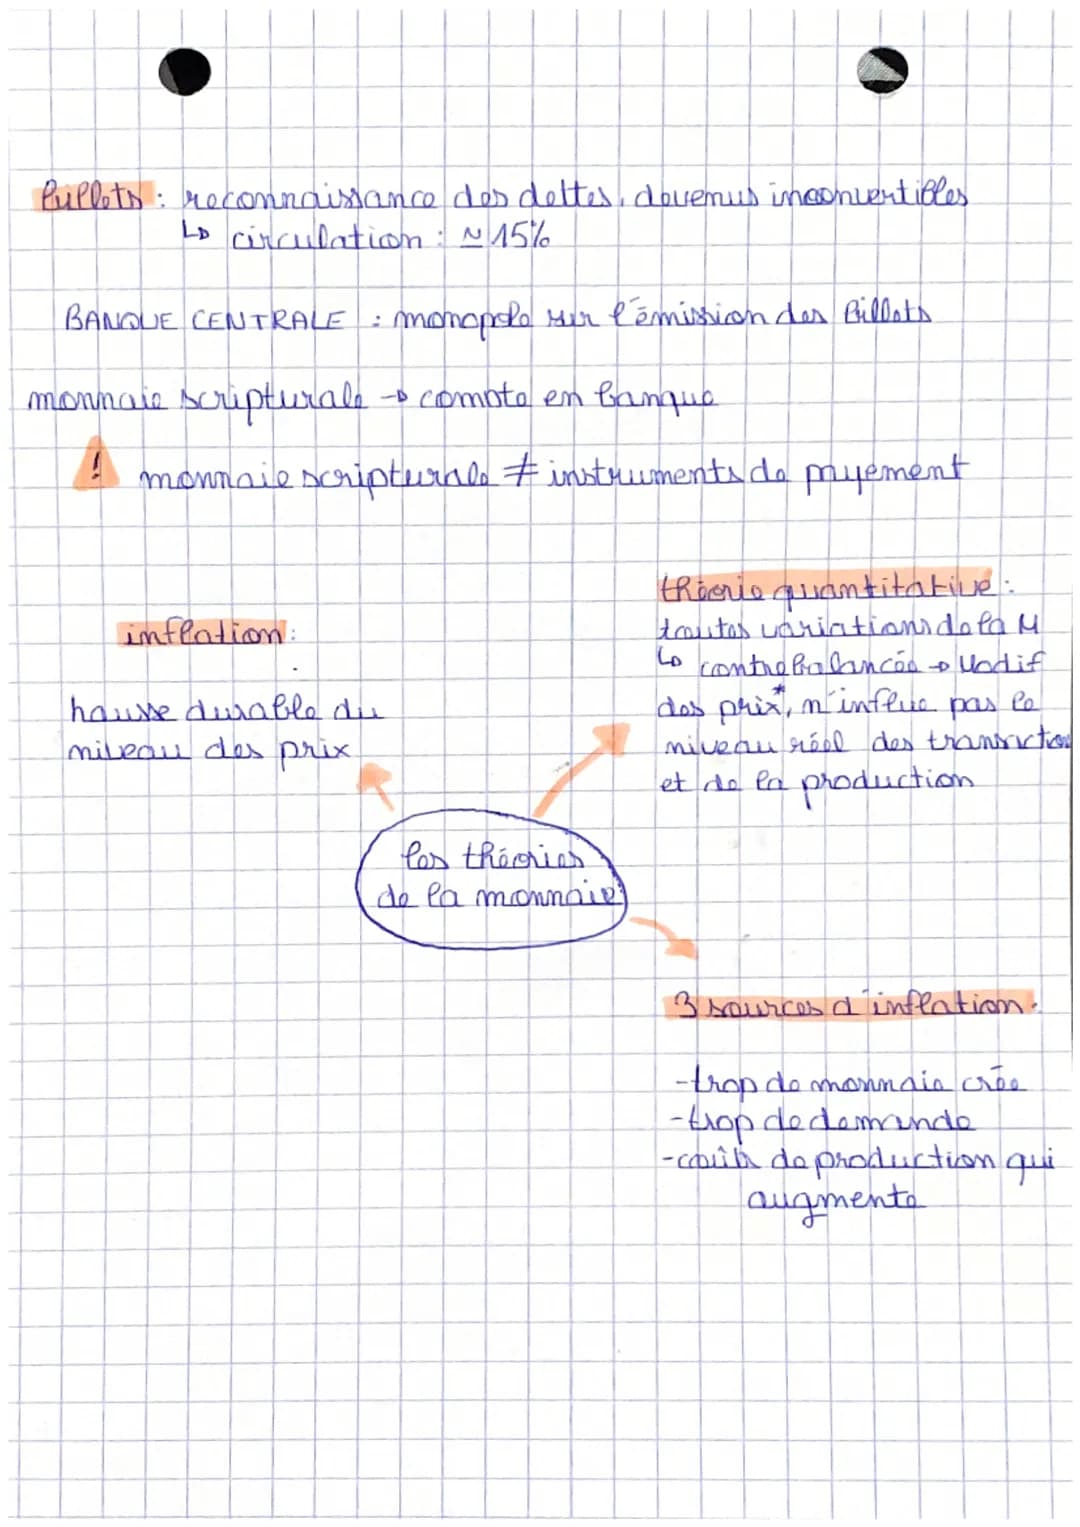 billets : reconnaissance des dettes, devenus inconvertibles
↳ circulation : ≈ 15%
BANQUE CENTRALE : monopole sur l'émission des billets
monnaie scripturale → compte en banque
! monnaie scripturale ≠ instruments de payement
inflation :
hausse durable du
niveau des prix
théorie quantitative :
toutes variations de la M
↳ contrebalancée → Modif
des prix*, n'influe pas le
niveau réel des transaction
et de la production
les théories
de la monnaie
3 sources d'inflation :
- trop de monnaie crée
- trop de demande
- coûts de production qui
augmente